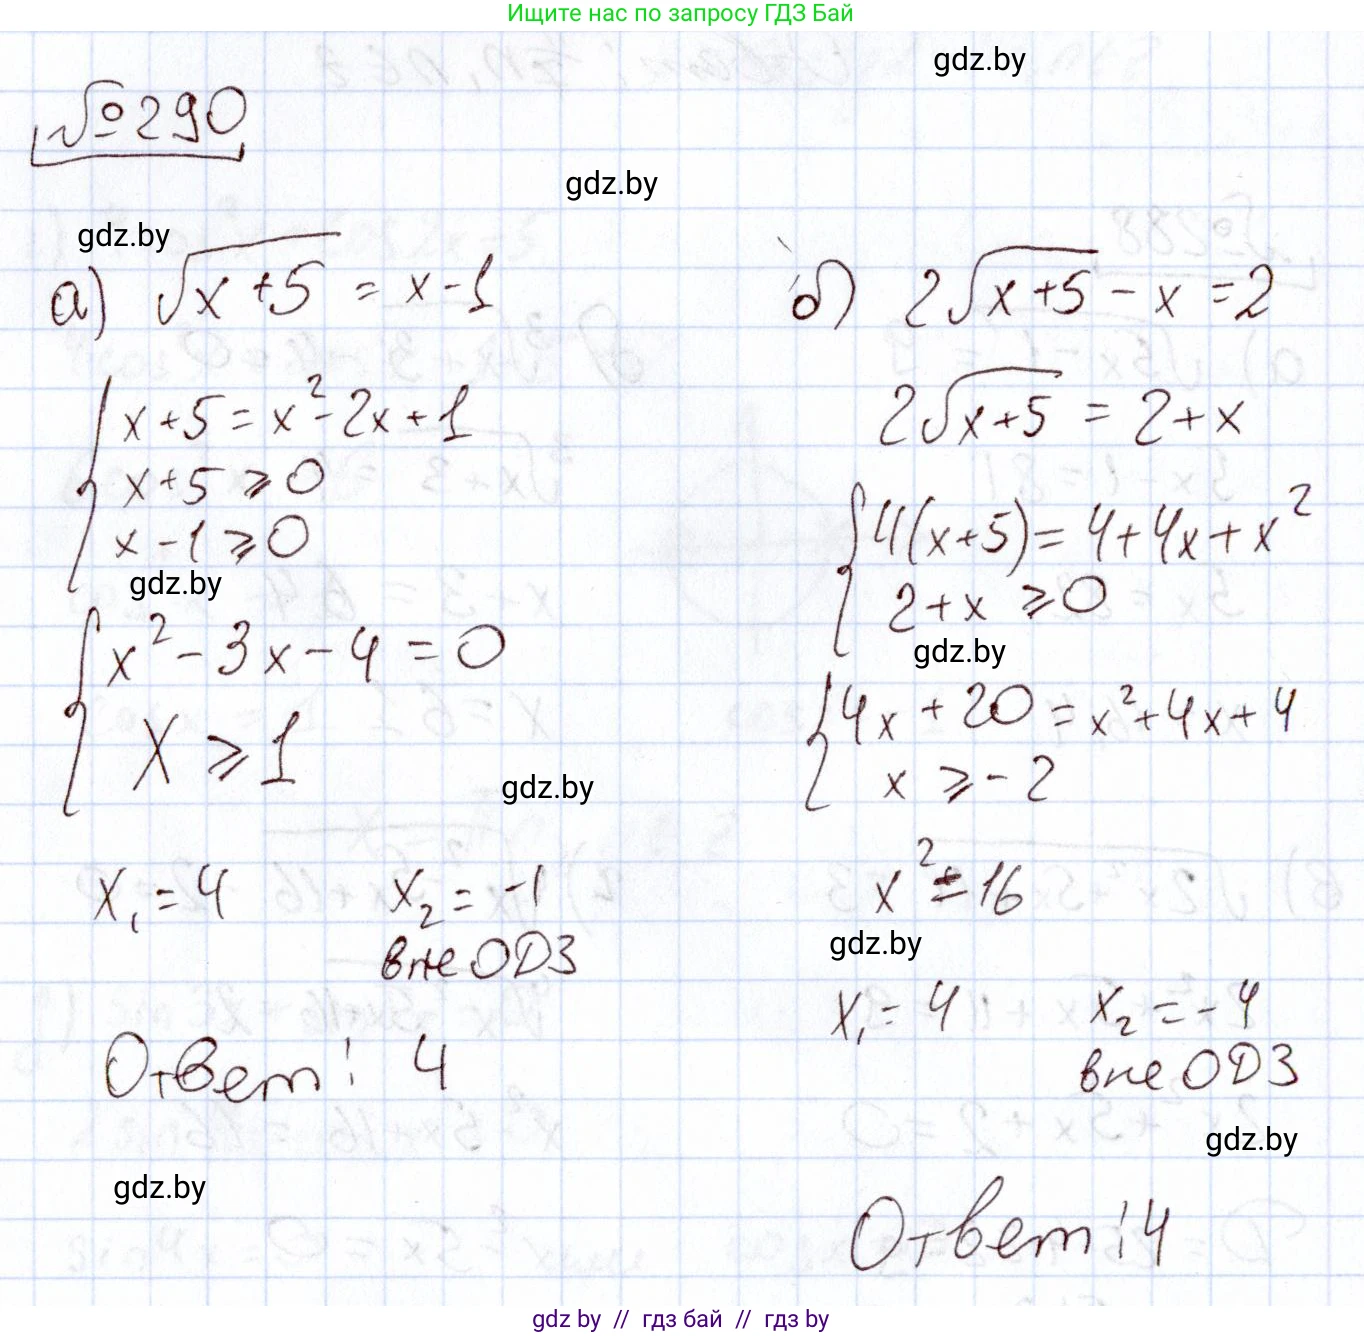 Ищите нас по запросу ГДЗ Бай
gdz.by
№290
gdz.by
gdz.by
а) √(x+5) = x-1
{ x+5 = x²-2x+1
x+5 ⩾ 0
x-1 ⩾ 0
gdz.by
{ x² - 3x - 4 = 0
x ⩾ 1
gdz.by
x₁ = 4 x₂ = -1
вне ОДЗ
Ответ: 4
gdz.by
б) 2√(x+5) - x = 2
2√(x+5) = 2+x
{ 4(x+5) = 4+4x+x²
2+x ⩾ 0
gdz.by
{ 4x + 20 = x²+4x+4
x ⩾ -2
x² = 16
gdz.by
x₁ = 4 x₂ = -4
вне ОДЗ
gdz.by
Ответ: 4
gdz by // гдз бай // гдз by